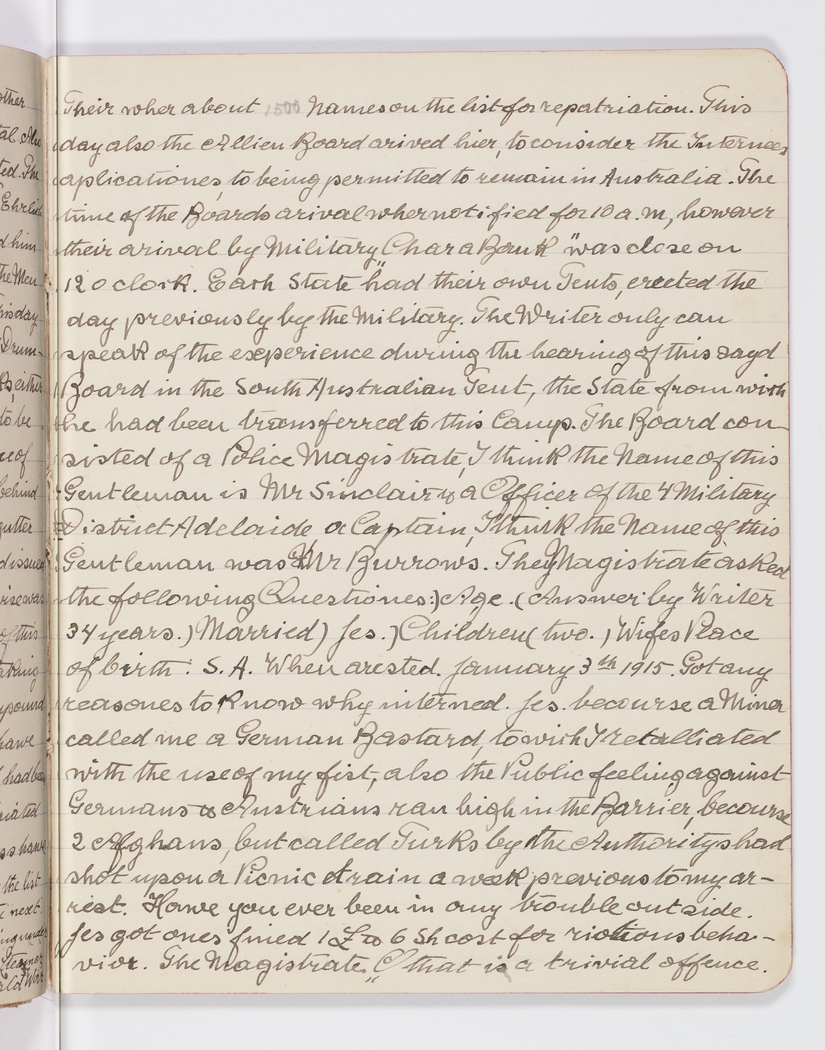 Their wher about 1500 Names on the list for repatriation. This
day also the Allien Board arived hier, to consider the Internees
aplicationes, to being permitted to remain in Australia. The
time of the Boards arival wher notified for 10 a.m, however
their arival by Military "Chara Bank" was close on
12 o clock. Each State had their own Tents, erected the
day previously by the Military. The Writer only can
speak of the experience during the hearing of this sayd
Board in the South Australian Tent, the State from wich
he had been transferred to this Camp. The Board con-
sisted of a Police Magistrate, I think the Name of this
Gentleman is Mr Sinclair & a Officer of the 4 Military
District Adelaide a Captain, I think the Name of this
Gentleman was Mr Burrows. They Magistrate asked
the following Questiones:) Age. (Answer by Writer
34 years.) Married) Jes.) Children (two.) Wifes Place
of birth: S.A. When arested. January 3th 1915. Got any
reasones to know why interned. Jes. becourse a Miner
called me a German Bastard, to wich I retalliated
with the use of my fist, also the Public feeling against
Germans & Austrians ran high in the Barrier, becourse
2 Afghans, but called Turks by the Authoritys had
shot upon a Picnic train a week previous to my ar-
rest. Hawe you ever been in any trouble outside.
Jes got ones fined 1£ & 6 Sh cost for riotious beha-
vior. The Magistrate. "O that is a trivial offence.